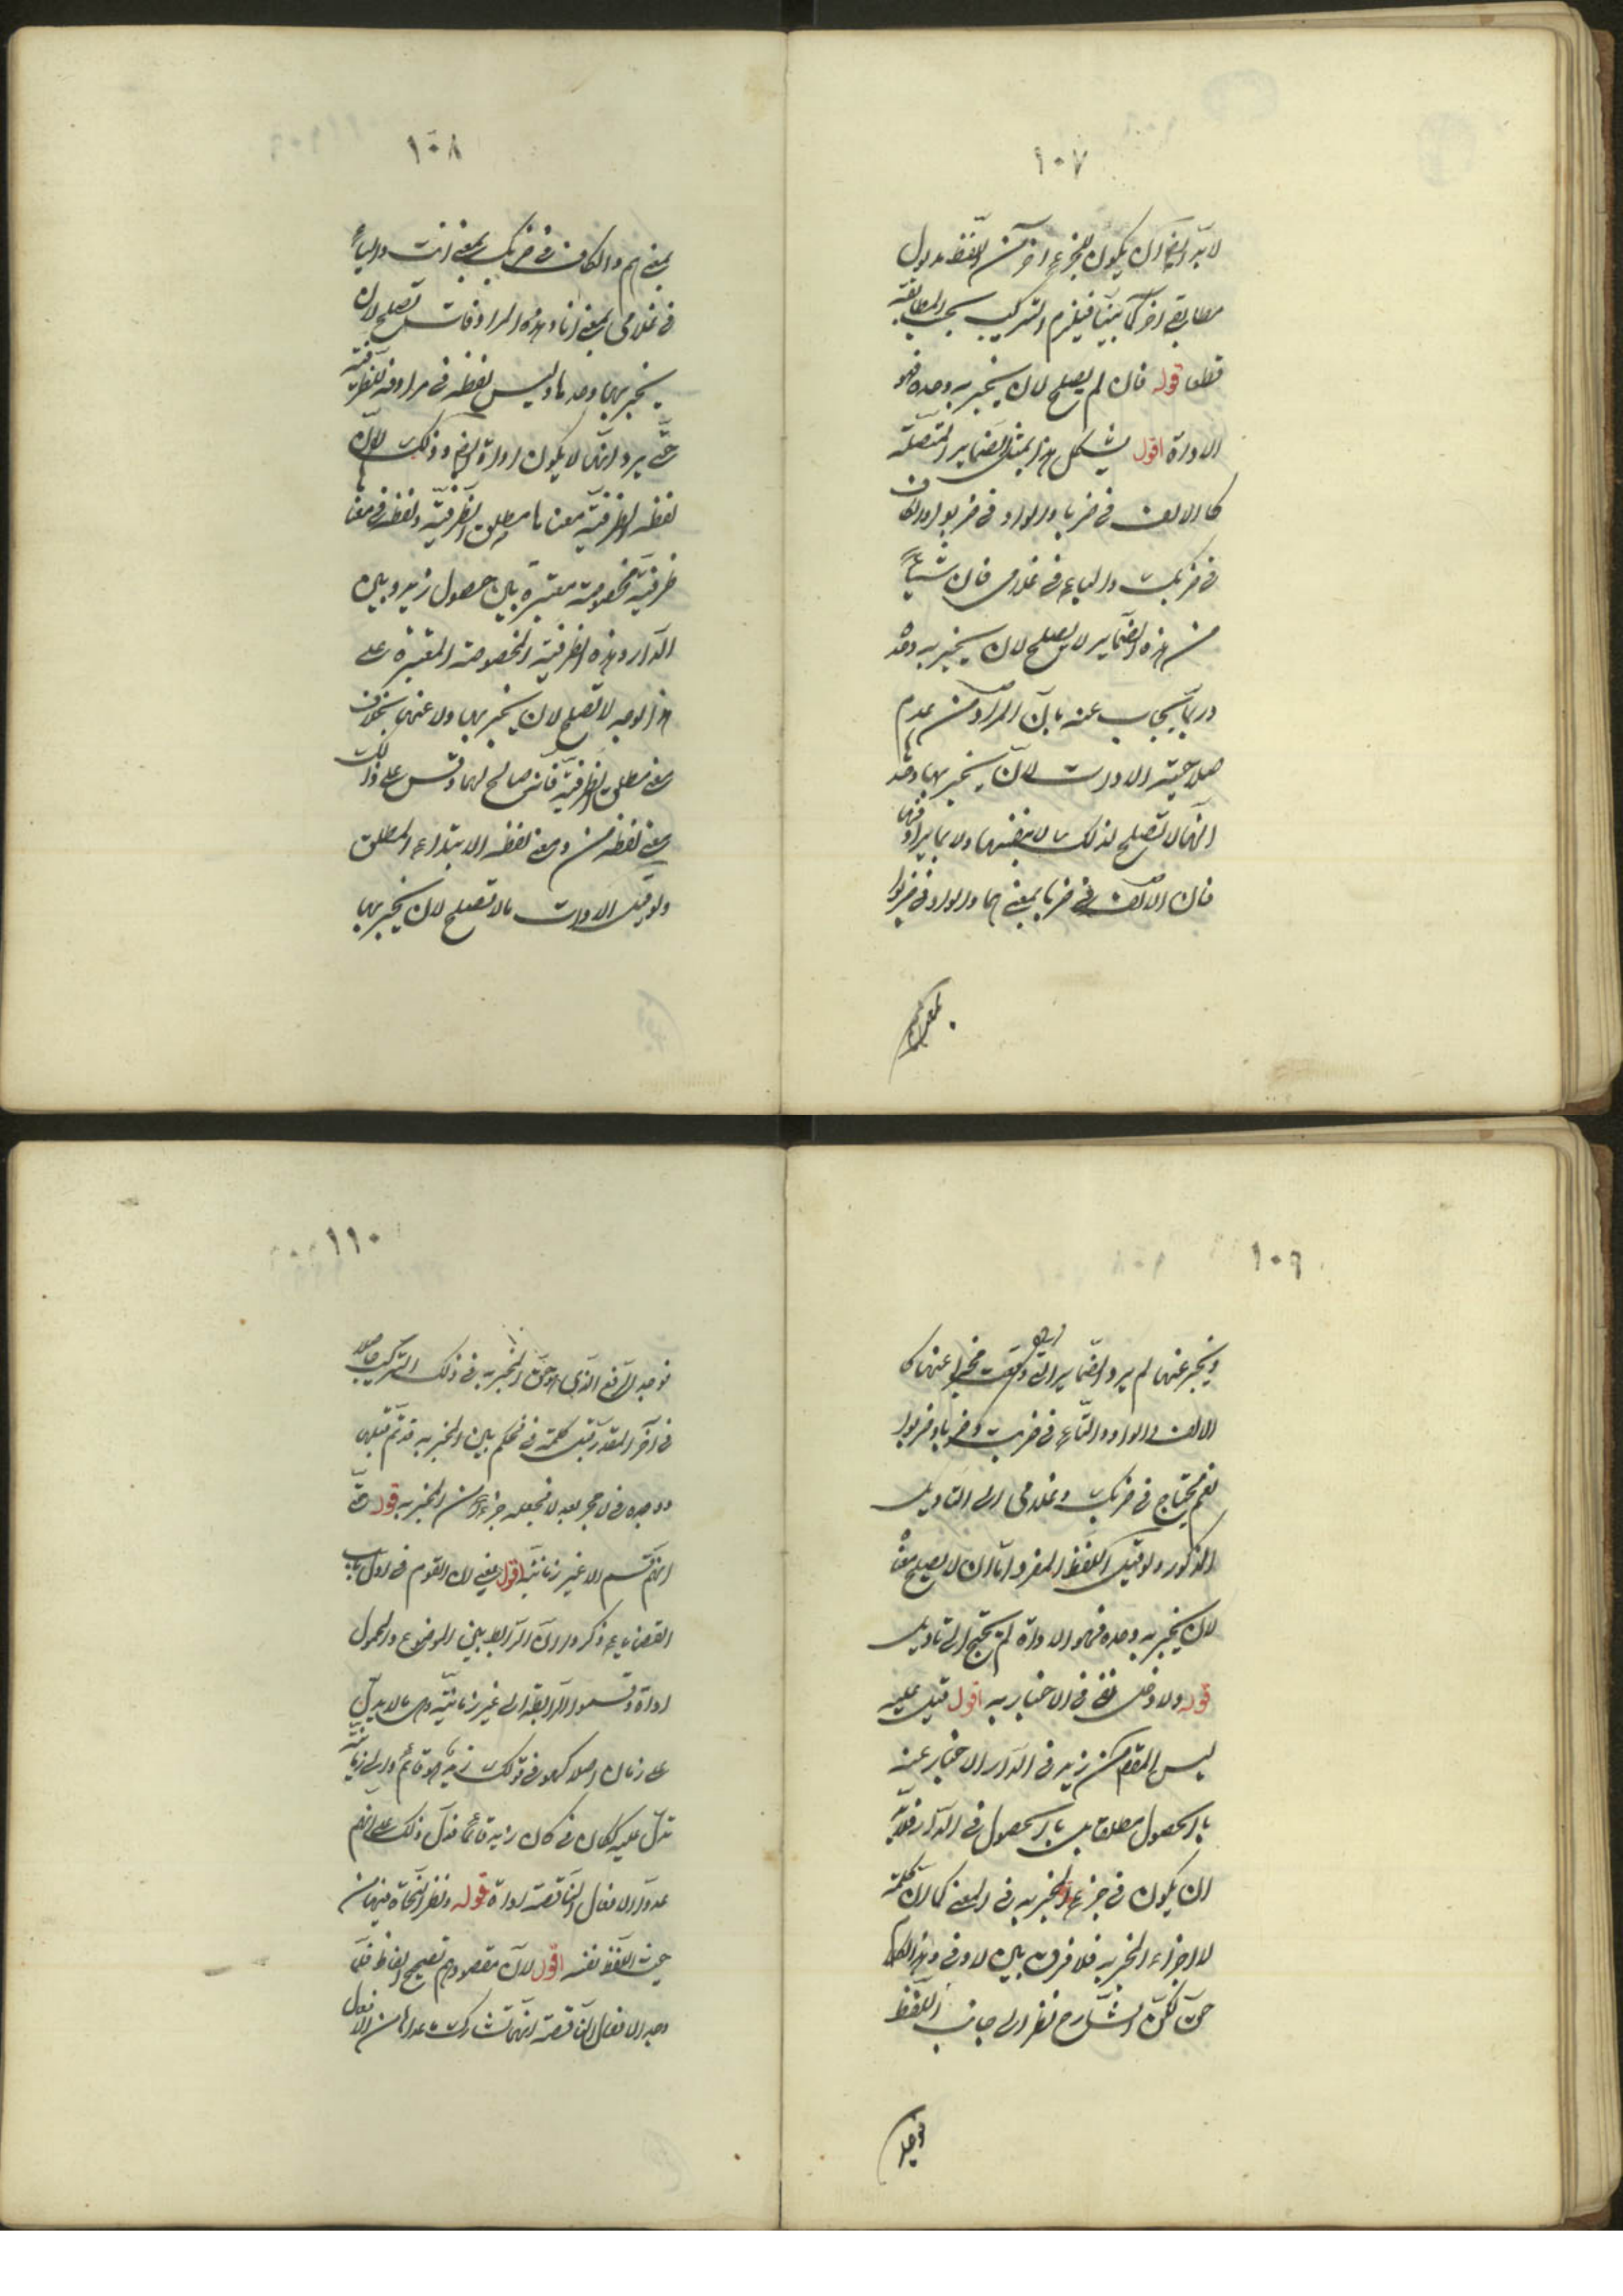 ١٠٧
لا بد ايضا ان يكون لجزء اخر من اللفظ مدلول
مطابقى اخر كما بينا فيلزم التركيب بحسب المطابقة
قطعا قوله فان لم يصلح لان يخبر به وحده فهو
الاداة اقول يشكل هذا بمثل الضماير المتصلة
كالالف فى ضربا والواو فى ضربوا والكاف
فى ضربك والياء فى غلامى فان شيئا
من هذه الضماير لا يصلح لان يخبر به وحده
وربما يجاب عنه بان المراد من عدم
صلاحية الادات لان يخبر بها وحدها
انها لا تصلح لذلك لا بنفسها ولا بما يرادفها
فان الالف فى ضربا بمعنى هما والواو فى ضربوا
بمعنى هم
١٠٨
بمعنى هم والكاف فى ضربك بمعنى انت والياء
فى غلامى بمعنى انا وهذه المرادفات تصلح لان
يخبر بها وحدها وليس لفظة فى مرادفة للظرفية
حتى يرد انها لا يكون اداة ايضا وذلك لان
لفظة الظرفية معناها مطلق الظرفية ولفظة فى معناها
ظرفية مخصوصة معتبرة بين حصول زيد وبين
الدار وهذه الظرفية المخصوصة المعتبرة على
هذا الوجه لا تصلح لان يخبر بها ولا عنها بخلاف
معنى مطلق الظرفية فانه صالح لهما وقس على ذلك
معنى لفظة من ومعنى لفظة الابتداء المطلق
ولو قيل الادات ما لا تصلح لان يخبر بها
١٠٩
ويخبر عنها لم يرد الضماير التى وقعت مخبرا عنها كا
الالف والواو والتاء فى ضربت وضربا وضربوا
نعم يحتاج فى ضربك وغلامى الى التاويل
المذكور ولو قيل اللفظ المفرد اما ان لا يصلح معناه
لان يخبر به وحده فهو الاداة لم يحتج الى تاويل
قوله ولا دخل فى الاخبار به اقول قيل عليه
ليس المقصود من زيد فى الدار الاخبار عنه
بالحصول مطلقا بل بالحصول فى الدار فلا بد
ان يكون فى جزء المخبر به فى المعنى كما ان كلمة
لا جزء المخبر به فلا فرق بين لا وفى وهذا الكلام
حق لكن الشارح نظر الى جانب اللفظ
فوجد
١١٠
فوجد الرفع الذى هو حق المخبر به فى ذلك التركيب حاصلا
فى آخر المقدر قبل كلمة فى فحكم بان المخبر به قد تم قبلها
ووجده فى لا حجر بعد لا فجعله جزءا من المخبر به قوله حتى
انهم قسم الا غير زمانية اقول يعنى ان القوم فى اول باب
القضايا ذكروا ان الرابط بين الموضوع والمحمول
اداة وقسموا الرابطة الى غير زمانية وهى ما لا يدل
على زمان اصلا كهو فى قولك زيد هو قائم والى زمانية
تدل عليه ككان فى كان زيد قائما فدل ذلك على انهم
عدوا الافعال الناقصة اداة قوله ونظر النحاة فيها من
حيث اللفظ نفسه اقول لان مقصودهم تصحيح الفاظ فلما
وجد الافعال الناقصة انها تشارك ما عداها من الافعال